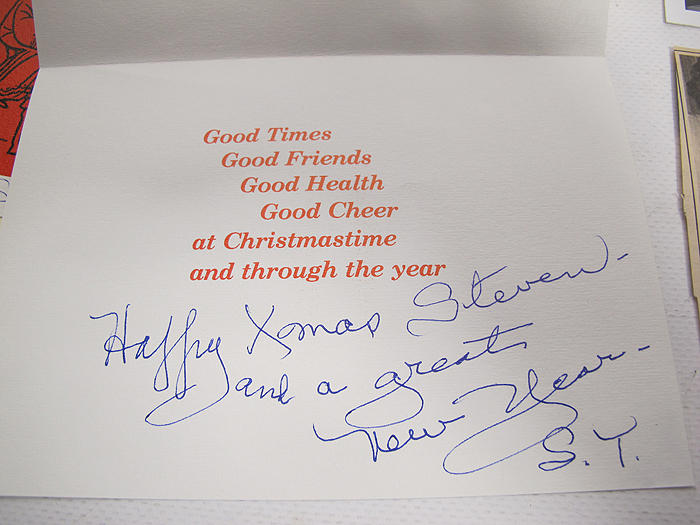 Good Times
Good Friends
Good Health
Good Cheer
at Christmastime
and through the year
Happy Xmas Steven -
and a great
New Year -
S.Y.